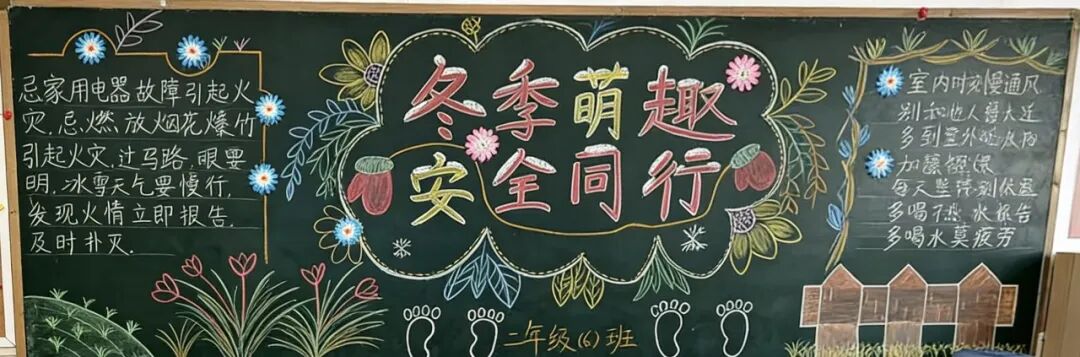 忌家用电器故障引起火
灾.忌.燃.放烟花爆竹
引起火灾.过马路,眼要
明,冰雪天气要慢行,
发现火情立即报告.
及时扑灭.
冬季萌趣
安全同行
二年级(6)班
室内时刻慢通风
别和他人得太近
多到室外
加
每天坚持别
多喝 水报告
多喝水莫疲劳